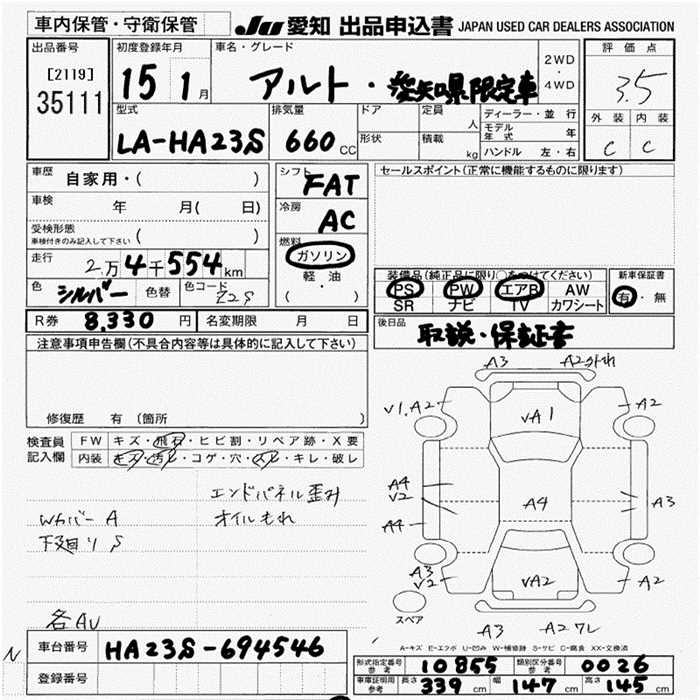 車内保管・守衛保管
JU 愛知 出品申込書 JAPAN USED CAR DEALERS ASSOCIATION
出品番号 初度登録年月 車名・グレード 2WD ・ 4WD 評価点
[2119]
35111
15 1月 アルト・愛知県限定車 3.5
型式 排気量 ドア 定員 人 ディーラー・並行 外装 内装
LA-HA23S 660 CC 形状 積載 kg モデル年式 年 C C
ハンドル 左・右
車歴 自家用・( ) シフト FAT セールスポイント(正常に機能するものに限ります)
車検 年 月( 日) 冷房 AC
受検形態 ( )
車検付きのみ記入して下さい
走行 2万4千554km 燃料 ガソリン
軽・油
( ・ )
装備品(純正品に限り○をつけてください) 新車保証書
色 シルバー 色替 色コード Z2S PS PW エアB AW 有・無
SR ナビ TV カワシート
R券 8,330円 名変期限 月 日 後日品 取説・保証書
注意事項申告欄(不具合内容等は具体的に記入して下さい)
修復歴 有 (箇所 )
検査員記入欄 FW キズ・飛石・ヒビ割・リペア跡・X要
内装 キズ・汚レ・コゲ・穴・スレ・キレ・破レ
エンドパネル歪み
Wカバー A オイルもれ
下廻り S
各AU
A3 A2
V1,A2 VA1 A2
A4
V2 A4 A3
A4
A3
V2 VA2 A2
スペア A3 A2ワレ
A-キズ E-エクボ U-凹み W-補修跡 S-サビ C-腐食 XX-交換済
N 車台番号 HA23S-694546
登録番号
形式指定番号 参考 10855 類別区分番号 参考 0026
車庫証明用 参考 長さ 339cm 幅 147cm 高さ 145cm